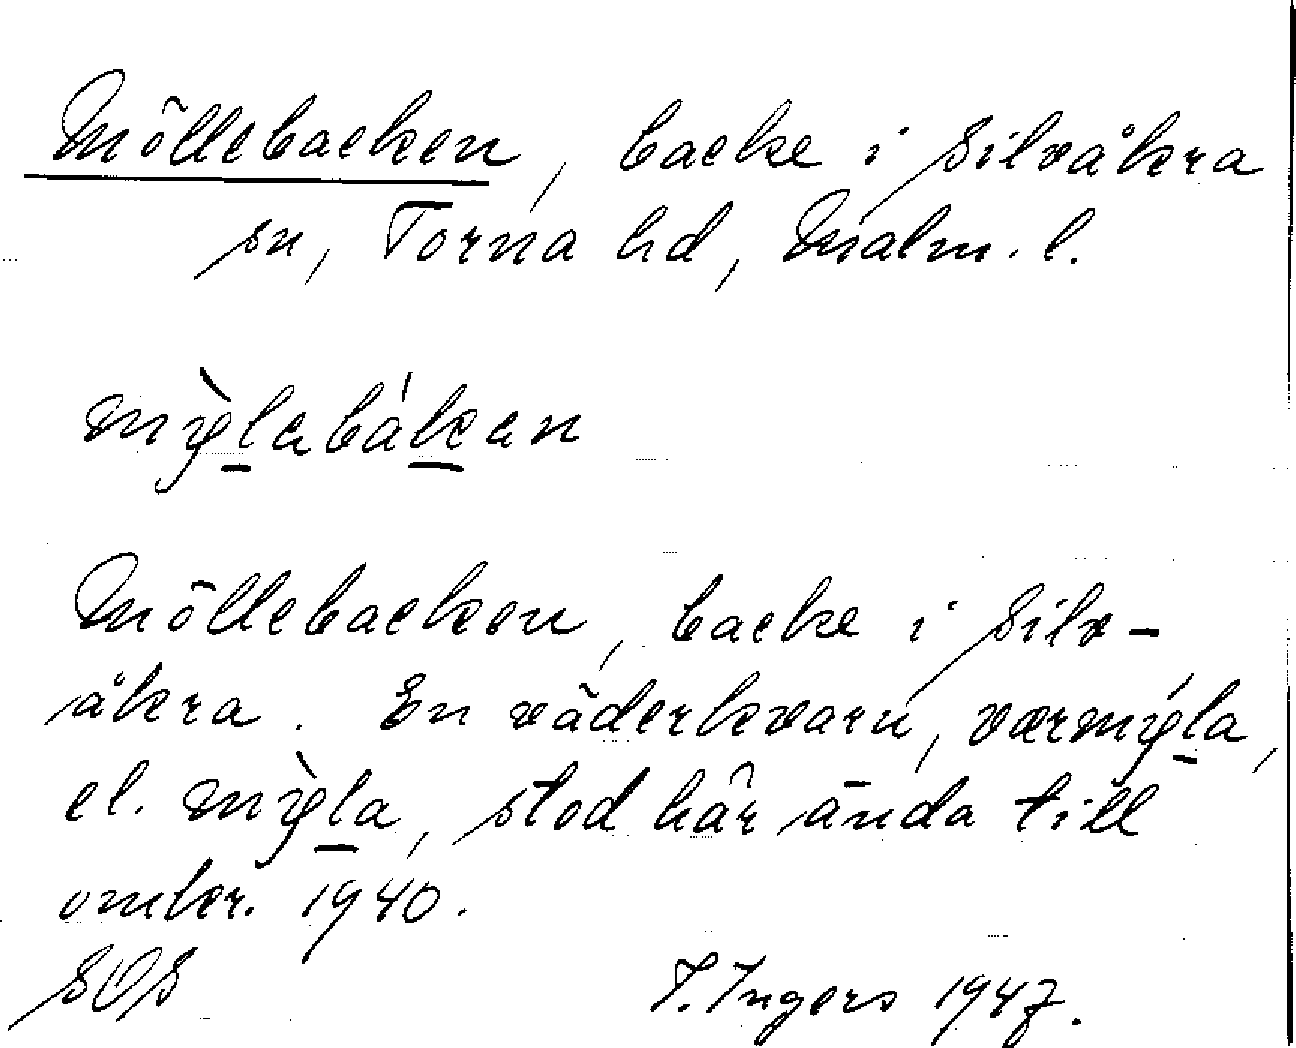 Möllebacken, backe i Silvåkra
sn, Torna hd, Malm. l.
mỳlabákan
Möllebacken, backe i Silv-
åkra. En väderkvarn, værmýla,
el. mỳla, stod här ända till
omkr. 1940.
SOS
I. Ingers 1947.